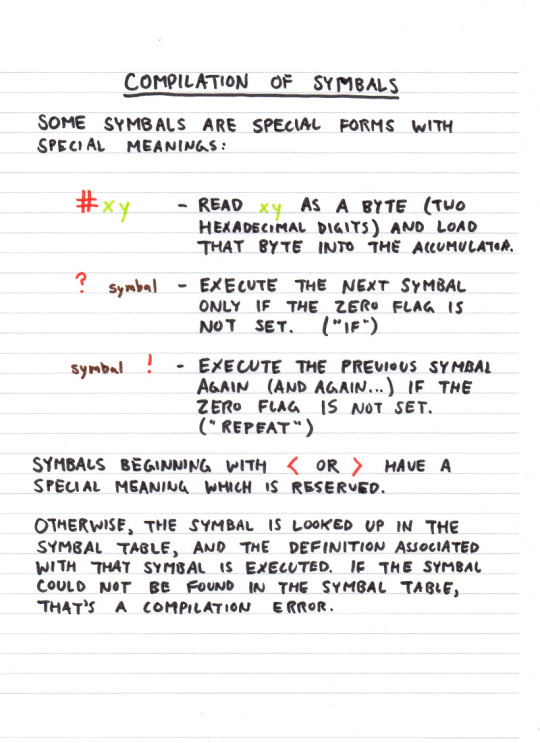 COMPILATION OF SYMBALS
SOME SYMBALS ARE SPECIAL FORMS WITH
SPECIAL MEANINGS:
#xy - READ xy AS A BYTE (TWO
HEXADECIMAL DIGITS) AND LOAD
THAT BYTE INTO THE ACCUMULATOR.
? symbal - EXECUTE THE NEXT SYMBAL
ONLY IF THE ZERO FLAG IS
NOT SET. ("IF")
symbal ! - EXECUTE THE PREVIOUS SYMBAL
AGAIN (AND AGAIN...) IF THE
ZERO FLAG IS NOT SET.
("REPEAT")
SYMBALS BEGINNING WITH < OR > HAVE A
SPECIAL MEANING WHICH IS RESERVED.
OTHERWISE, THE SYMBAL IS LOOKED UP IN THE
SYMBAL TABLE, AND THE DEFINITION ASSOCIATED
WITH THAT SYMBAL IS EXECUTED. IF THE SYMBAL
COULD NOT BE FOUND IN THE SYMBAL TABLE,
THAT'S A COMPILATION ERROR.